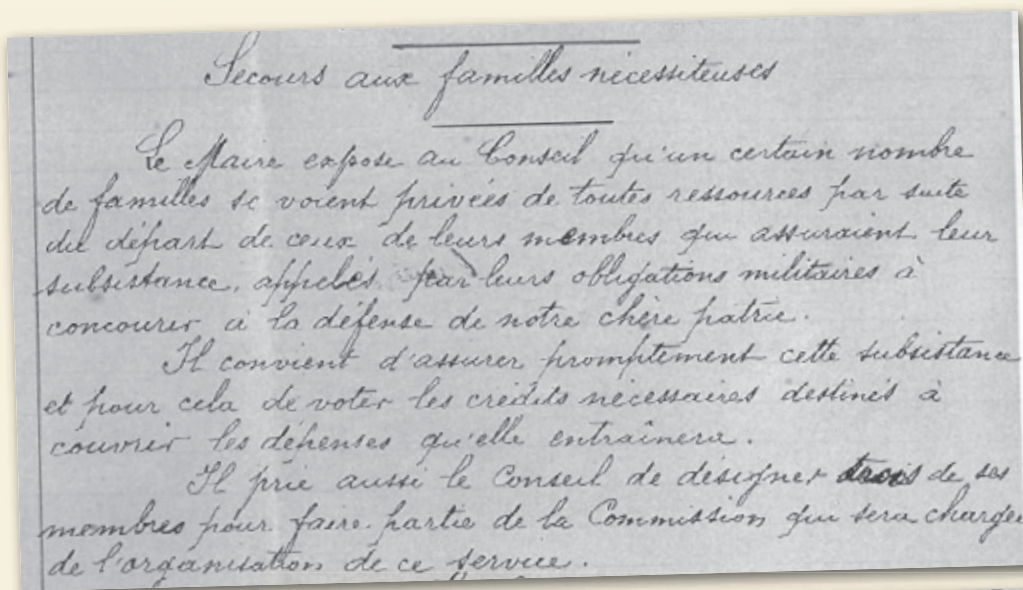 Secours aux familles nécessiteuses
Le Maire expose au Conseil qu'un certain nombre
de familles se voient privées de toutes ressources par suite
du départ de ceux de leurs membres qui assuraient leur
subsistance, appelés par leurs obligations militaires à
concourir à la défense de notre chère patrie.
Il convient d'assurer promptement cette subsistance
et pour cela de voter les crédits nécessaires destinés à
couvrir les dépenses qu'elle entraînera.
Il prie aussi le Conseil de désigner trois de ses
membres pour faire partie de la Commission qui sera chargée
de l'organisation de ce service.